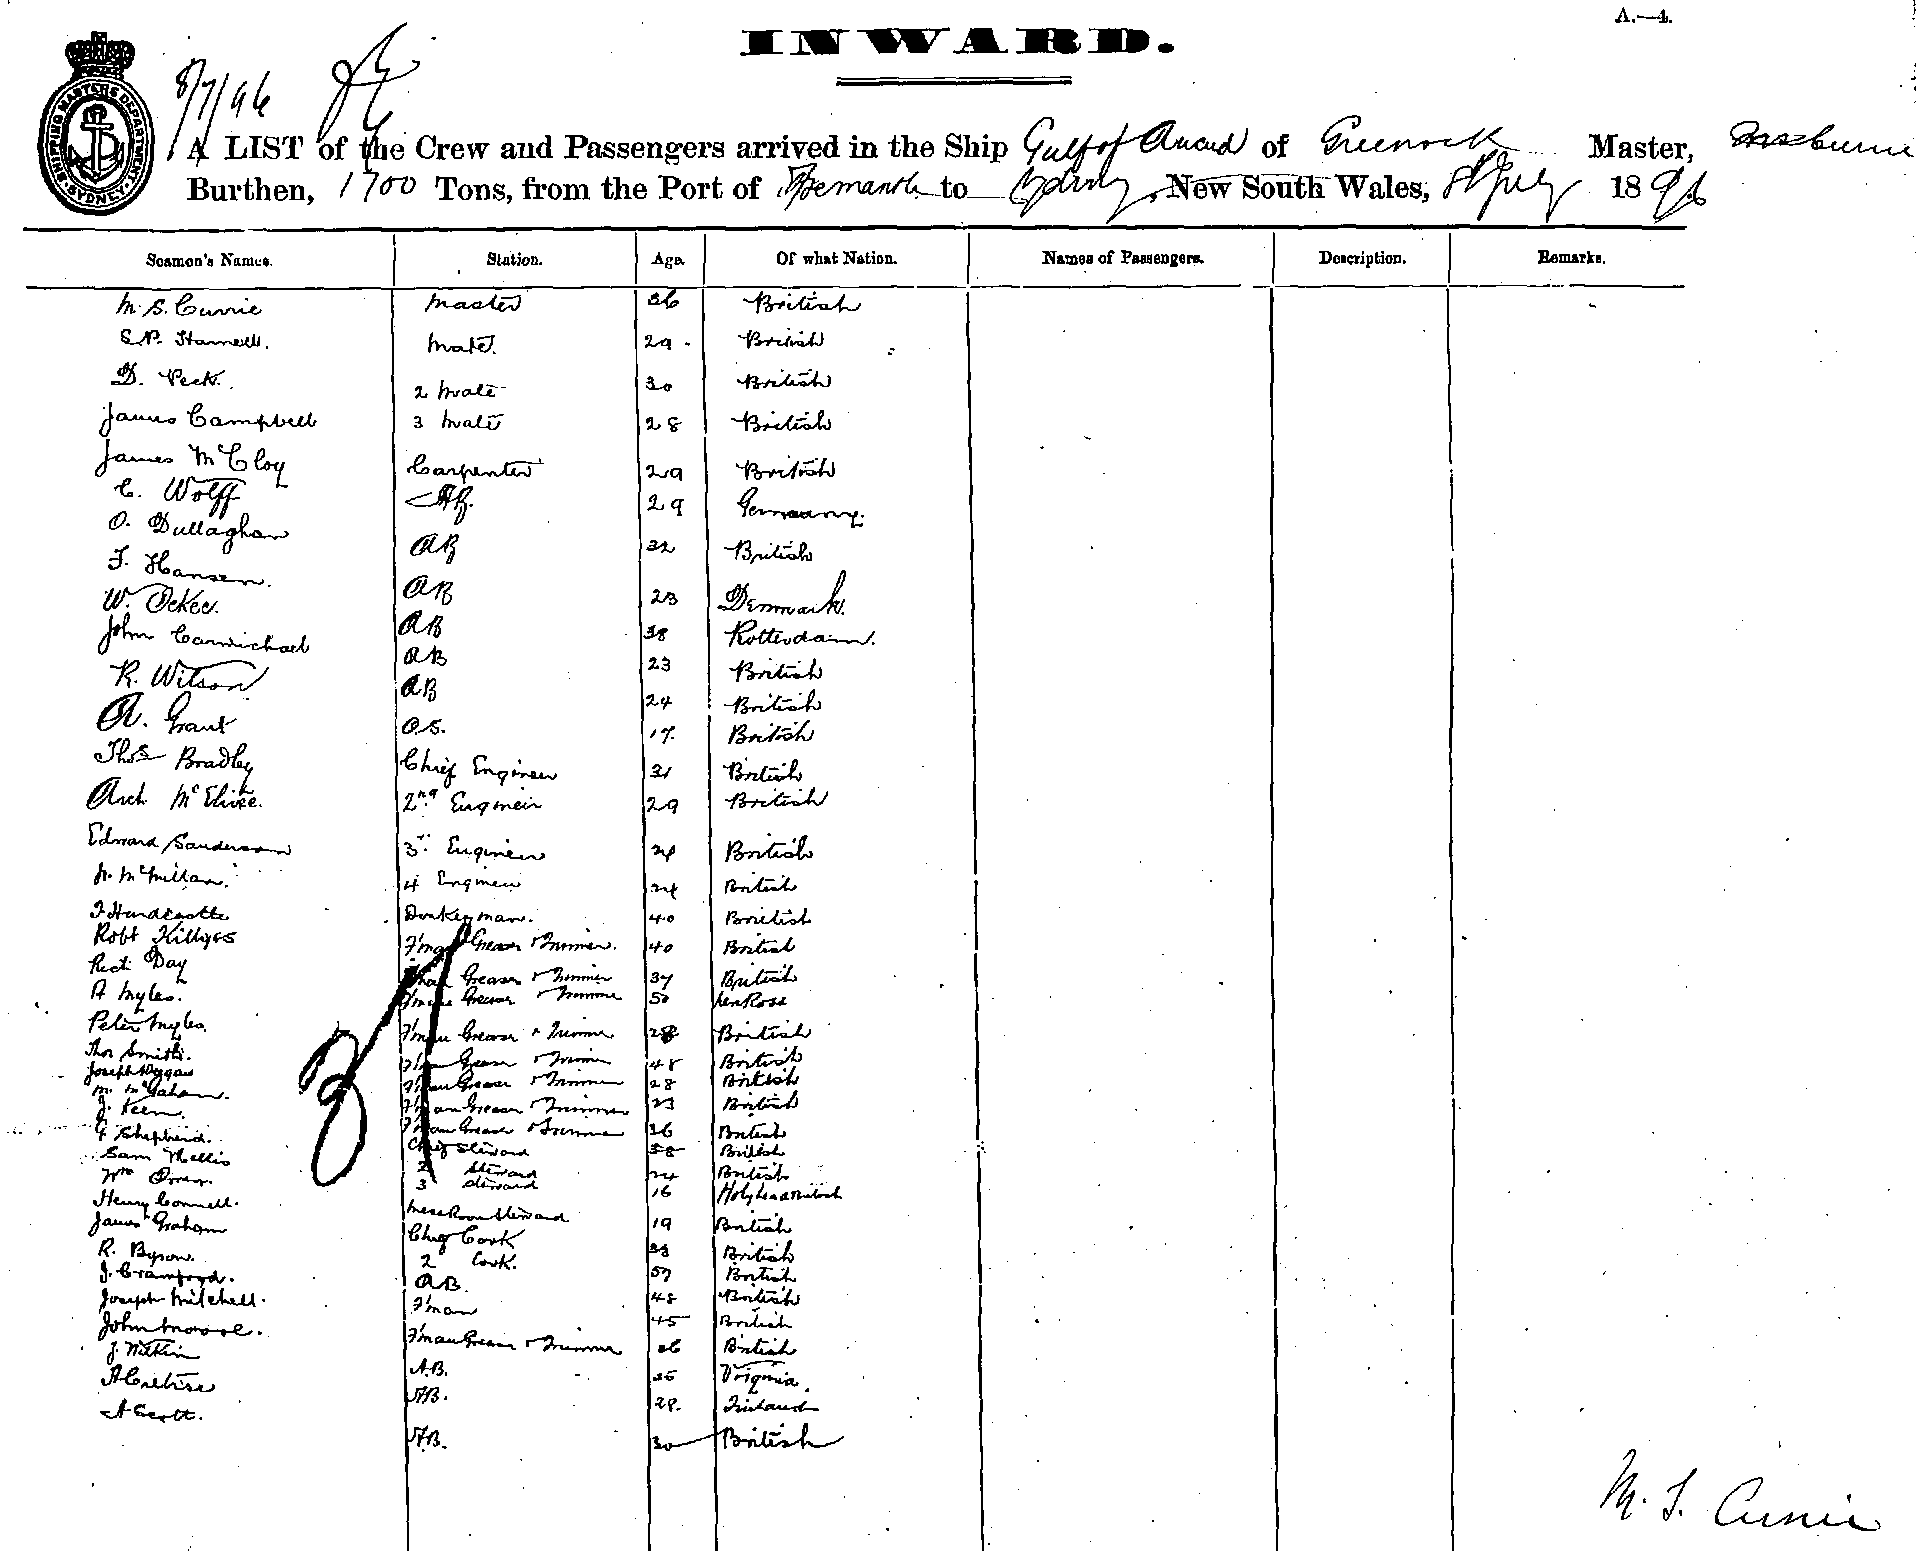 A.—4.
INWARD.
SHIPPING MASTERS DEPARTMENT SYDNEY
8/7/96
A LIST of the Crew and Passengers arrived in the Ship Gulf of of Greenock Master,
Burthen, 1700 Tons, from the Port of Fremantle to Sydney, New South Wales, 8 July 1896
Seamen's Names. Station. Age. Of what Nation. Names of Passengers. Description. Remarks.
M. S. Currie Master 36 British
S.P. Mate. 29 British
D. Peck. 2 Mate 30 British
James Campbell 3 Mate 28 British
James McCloy Carpenter 29 British
C. Wolff AB. 29 Germany.
O. Dullaghan AB 32 British
F. Hansen. AB 23 Denmark.
W. AB 38 Rotterdam.
John Carmichael AB 23 British
R. Wilson AB 24 British
A. Grant O.S. 17. British
Thos Bradley Chief Engineer 31 British
Arch 2nd Engineer 29 British
Edward Sanderson 3rd Engineer 24 British
McMillan. 4 Engineer 24 British
F Hardcastle Donkeyman. 40 British
Robt F'man Greaser & Trimmer. 40 British
Day F'man Greaser & Trimmer 37 British
A Myles. F'man Greaser & Trimmer 50
Peter Myles. F'man Greaser & Trimmer 28 British
Thos Smith. F'man Greaser & Trimmer 48 British
Joseph F'man Greaser & Trimmer 28 British
M. McGaham. F'man Greaser & Trimmer 23 British
J. Keen. F'man Greaser & Trimmer 36 British
G Shepherd. Chief Steward 38 British
Sam 2 Steward 24 British
Wm 3 Steward 16 Holyhead British
Henry Connell. Mess Room Steward 19 British
James Graham Chief Cook 33 British
R. Byson. 2 Cook. 57 British
J. Crawford. AB. 48 British
Joseph Mitchell. F'man 45 British
John F'man Greaser & Trimmer 36 British
J. A.B. 35 Virginia.
A AB. 28. Finland
A Scott. AB. 30 British
M. S. Currie